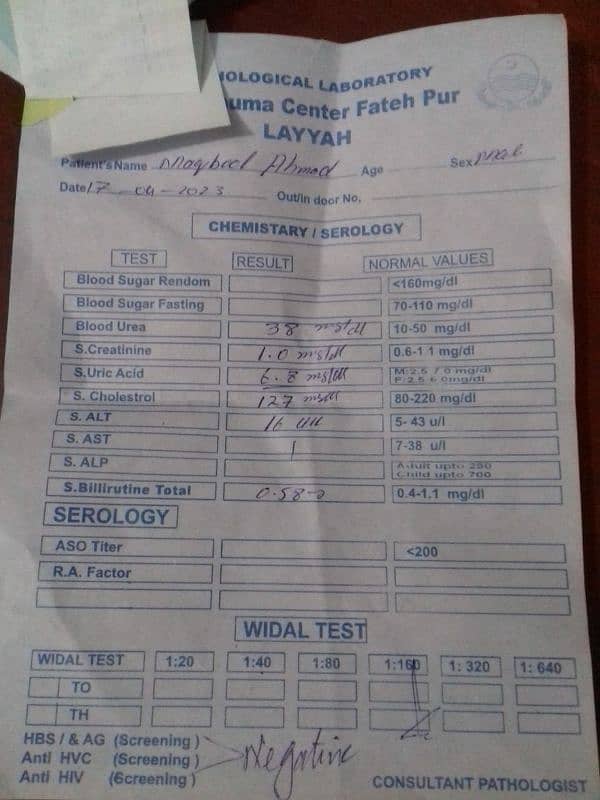 OLOGICAL LABORATORY
uma Center Fateh Pur
LAYYAH
Patient's Name Maqbool Ahmad Age Sex Male
Date 17-04-2023 Out/in door No.
CHEMISTARY / SEROLOGY
TEST RESULT NORMAL VALUES
Blood Sugar Rendom <160mg/dl
Blood Sugar Fasting 70-110 mg/dl
Blood Urea 38 mg/dl 10-50 mg/dl
S.Creatinine 1.0 mg/dl 0.6-1.1 mg/dl
S.Uric Acid 6.8 mg/dl M:2.5 7.0 mg/dl
F:2.5 6.0mg/dl
S. Cholestrol 127 mg/dl 80-220 mg/dl
S. ALT 16 u/l 5- 43 u/l
S. AST 7-38 u/l
S. ALP Adult upto 250
Child upto 700
S.Billirutine Total 0.58 0.4-1.1 mg/dl
SEROLOGY
ASO Titer <200
R.A. Factor
WIDAL TEST
WIDAL TEST 1:20 1:40 1:80 1:160 1: 320 1: 640
TO
TH
HBS / & AG (Screening)
Anti HVC (Screening) Negative
Anti HIV (Screening) CONSULTANT PATHOLOGIST